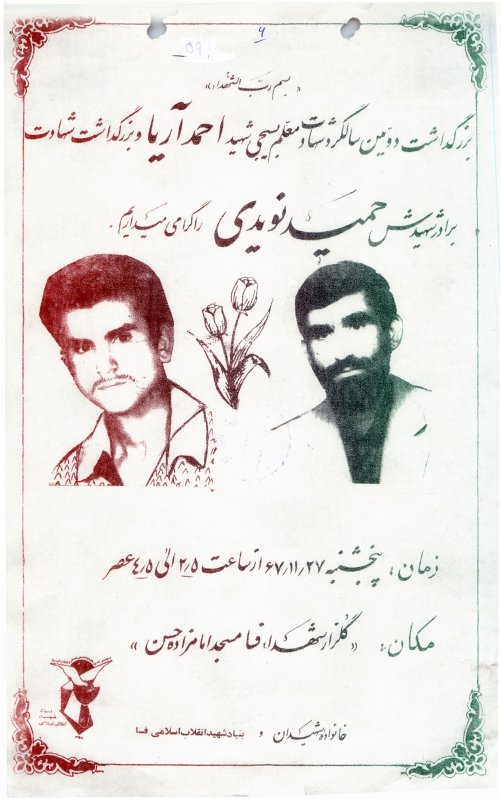 ۶
۵۹۱
«بسم رب الشهداء»
بزرگداشت دومین سالگرد شهادت معلم بسیجی شهید احمد آریا و بزرگداشت شهادت
برادر شهیدش حمید نویدی را گرامی میداریم.
زمان: پنجشنبه ۶۷/۱۱/۲۷ از ساعت ۲/۵ الی ۴/۵ عصر
مکان: «گلزار شهداء فسا مسجد امامزاده حسن»
بنیاد
شهید
انقلاب اسلامی
خانواده شهیدان و بنیاد شهید انقلاب اسلامی فسا